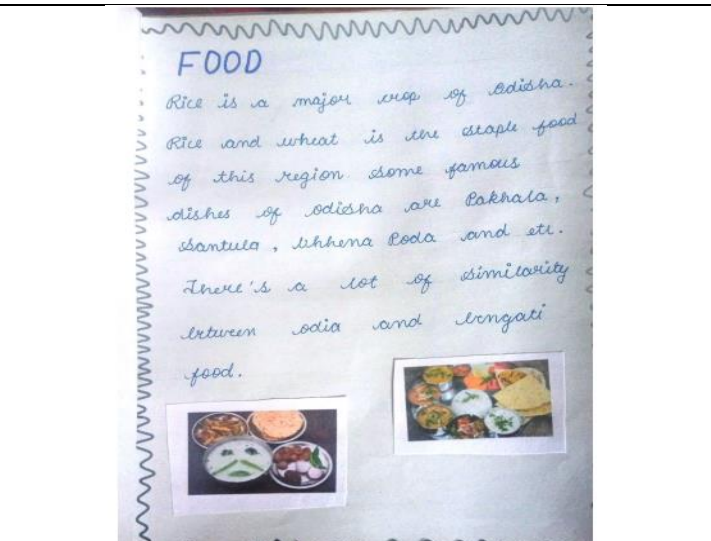 FOOD
Rice is a major crop of Odisha.
Rice and wheat is the staple food
of this region some famous
dishes of odisha are Pakhala,
Santula, Chhena Poda and etc.
There's a lot of similarity
between odia and bengali
food.